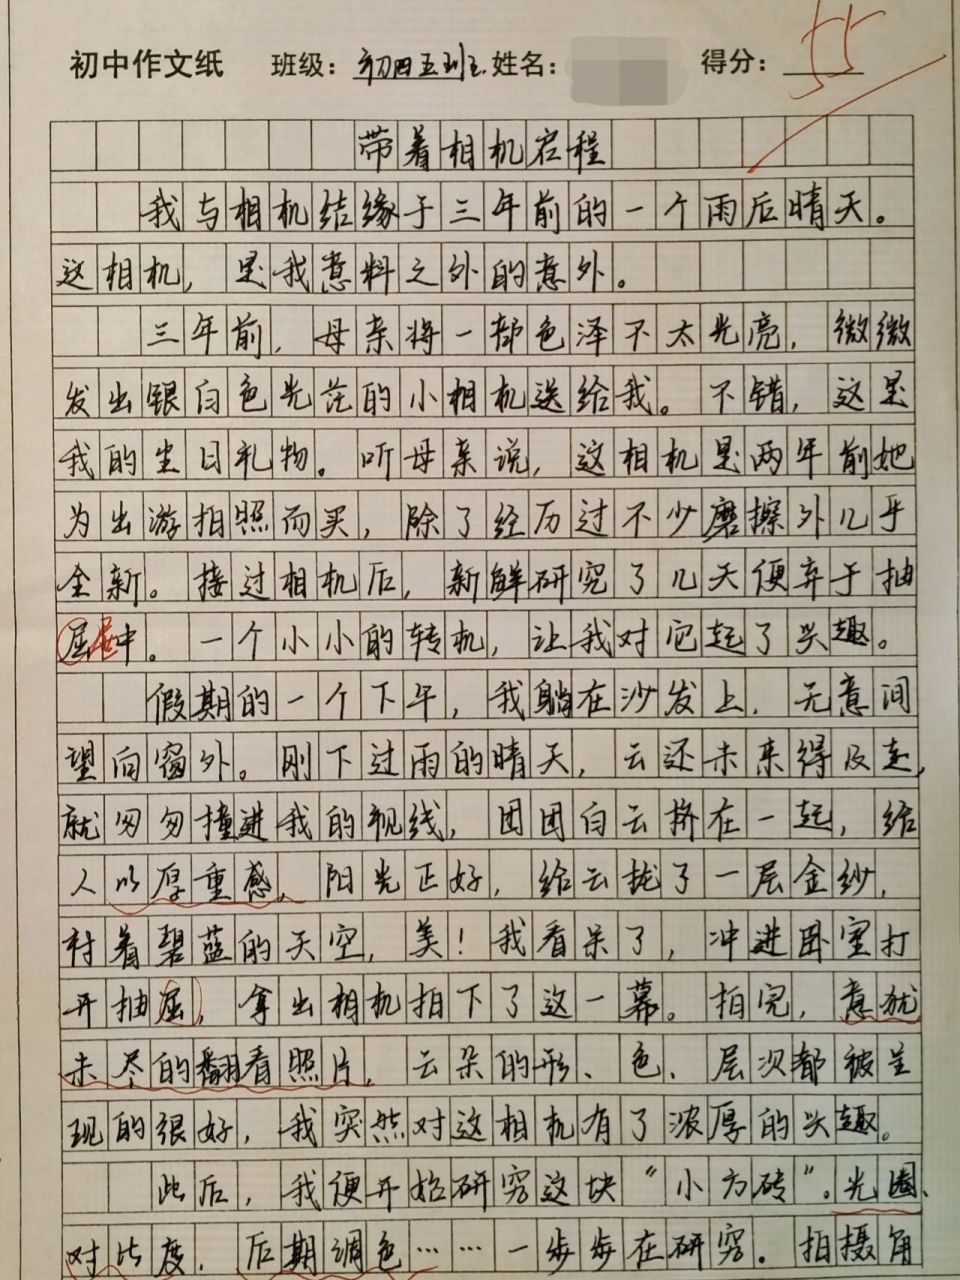 初中作文纸 班级：初四五班 姓名： 得分：55
带着相机启程
我与相机结缘于三年前的一个雨后晴天。
这相机，是我意料之外的意外。
三年前，母亲将一部色泽不太光亮，微微
发出银白色光茫的小相机送给我。不错，这是
我的生日礼物。听母亲说，这相机是两年前她
为出游拍照而买，除了经历过不少磨擦外几乎
全新。接过相机后，新鲜研究了几天便弃于抽
屈屉中。一个小小的转机，让我对它起了兴趣。
假期的一个下午，我躺在沙发上，无意间
望向窗外。刚下过雨的晴天，云还未来得及走，
就匆匆撞进我的视线，团团白云挤在一起，给
人以厚重感，阳光正好，给云拢了一层金纱，
衬着碧蓝的天空，美！我看呆了，冲进卧室打
开抽屈，拿出相机拍下了这一幕。拍完，意犹
未尽的翻看照片，云朵的形、色、层次都被呈
现的很好，我突然对这相机有了浓厚的兴趣。
此后，我便开始研究这块“小方砖”。光圈、
对比度、后期调色……一步步在研究。拍摄角